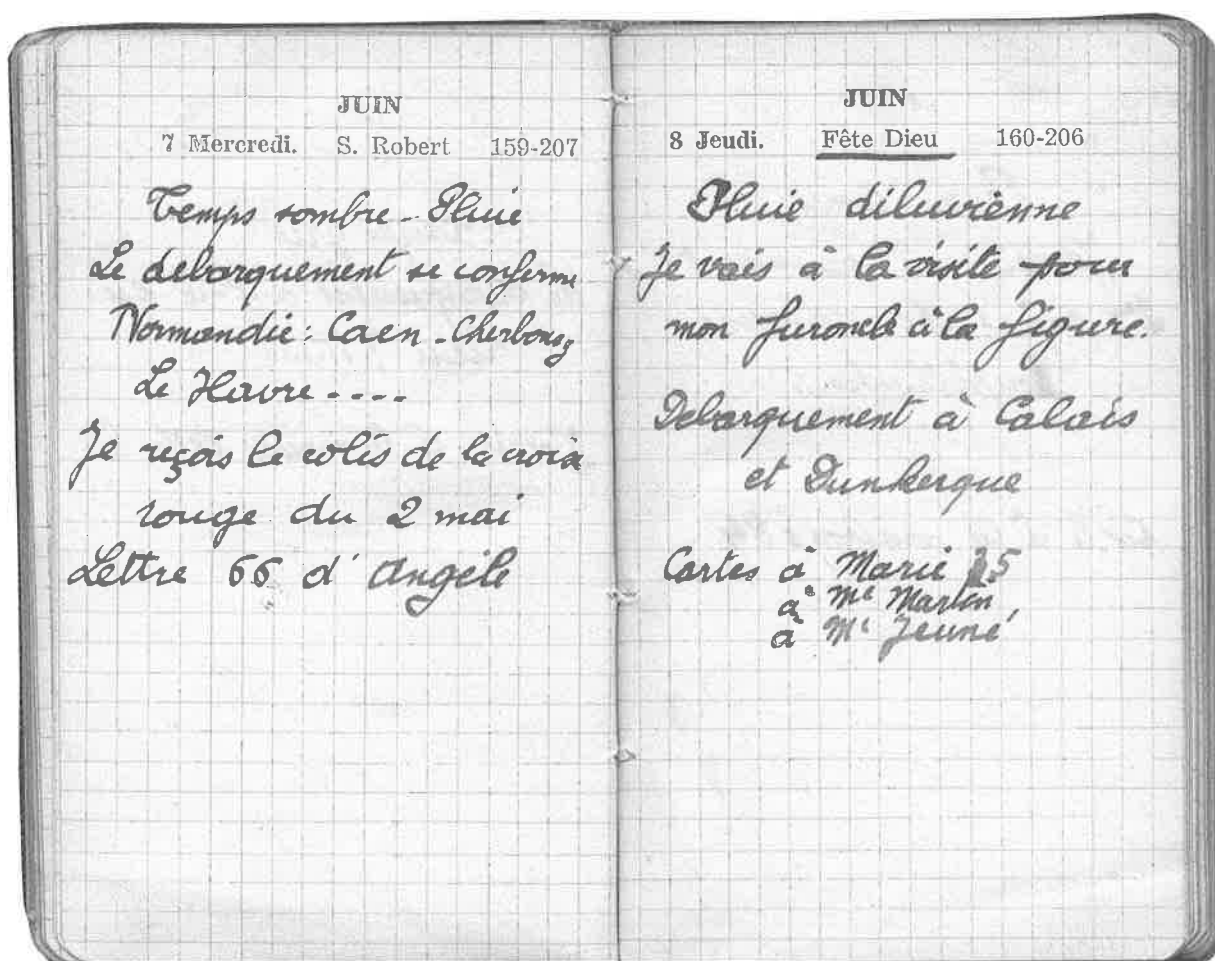 JUIN
7 Mercredi. S. Robert 159-207
Temps sombre - Pluie
Le debarquement se confirme
Normandie : Caen - Cherbourg
Le Havre ----
Je reçois le colis de la croix
rouge du 2 mai
Lettre 66 d' Angèle
JUIN
8 Jeudi. Fête Dieu 160-206
Pluie diluvienne
Je vais à la visite pour
mon furoncle à la figure.
Debarquement à Calais
et Dunkerque
Cartes à Marie 25
à Me Martin
à Me Jeuné